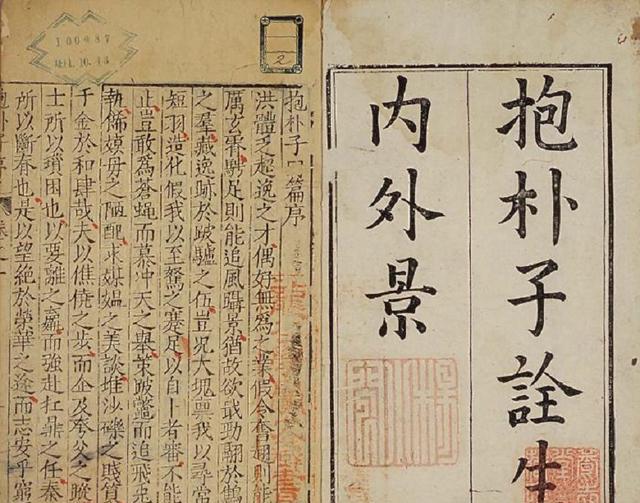 抱朴子詮生
内外景
2
抱朴子篇序
洪體乏超逸之才偶好無為之業假令奮翅則能
厲玄霄騁足則能追風躡景猶故欲戢勁翮於鷦
之羣藏逸跡於跛驢之伍豈况大塊稟我以尋常
短羽造化假我以至駑之蹇足以自卜者審不能
止豈敢為蒼蠅而慕冲天之舉策跛鼈而追飛兔
飾嫫母之陋醜求媒媼之美談堆沙礫之賤質
千金於和肆哉夫以僬僥之步而企及夸父之蹤
士所以躓困也以要離之羸而強赴扛鼎之任秦
所以斷筋也是以望絕於榮華之途而志安乎窮